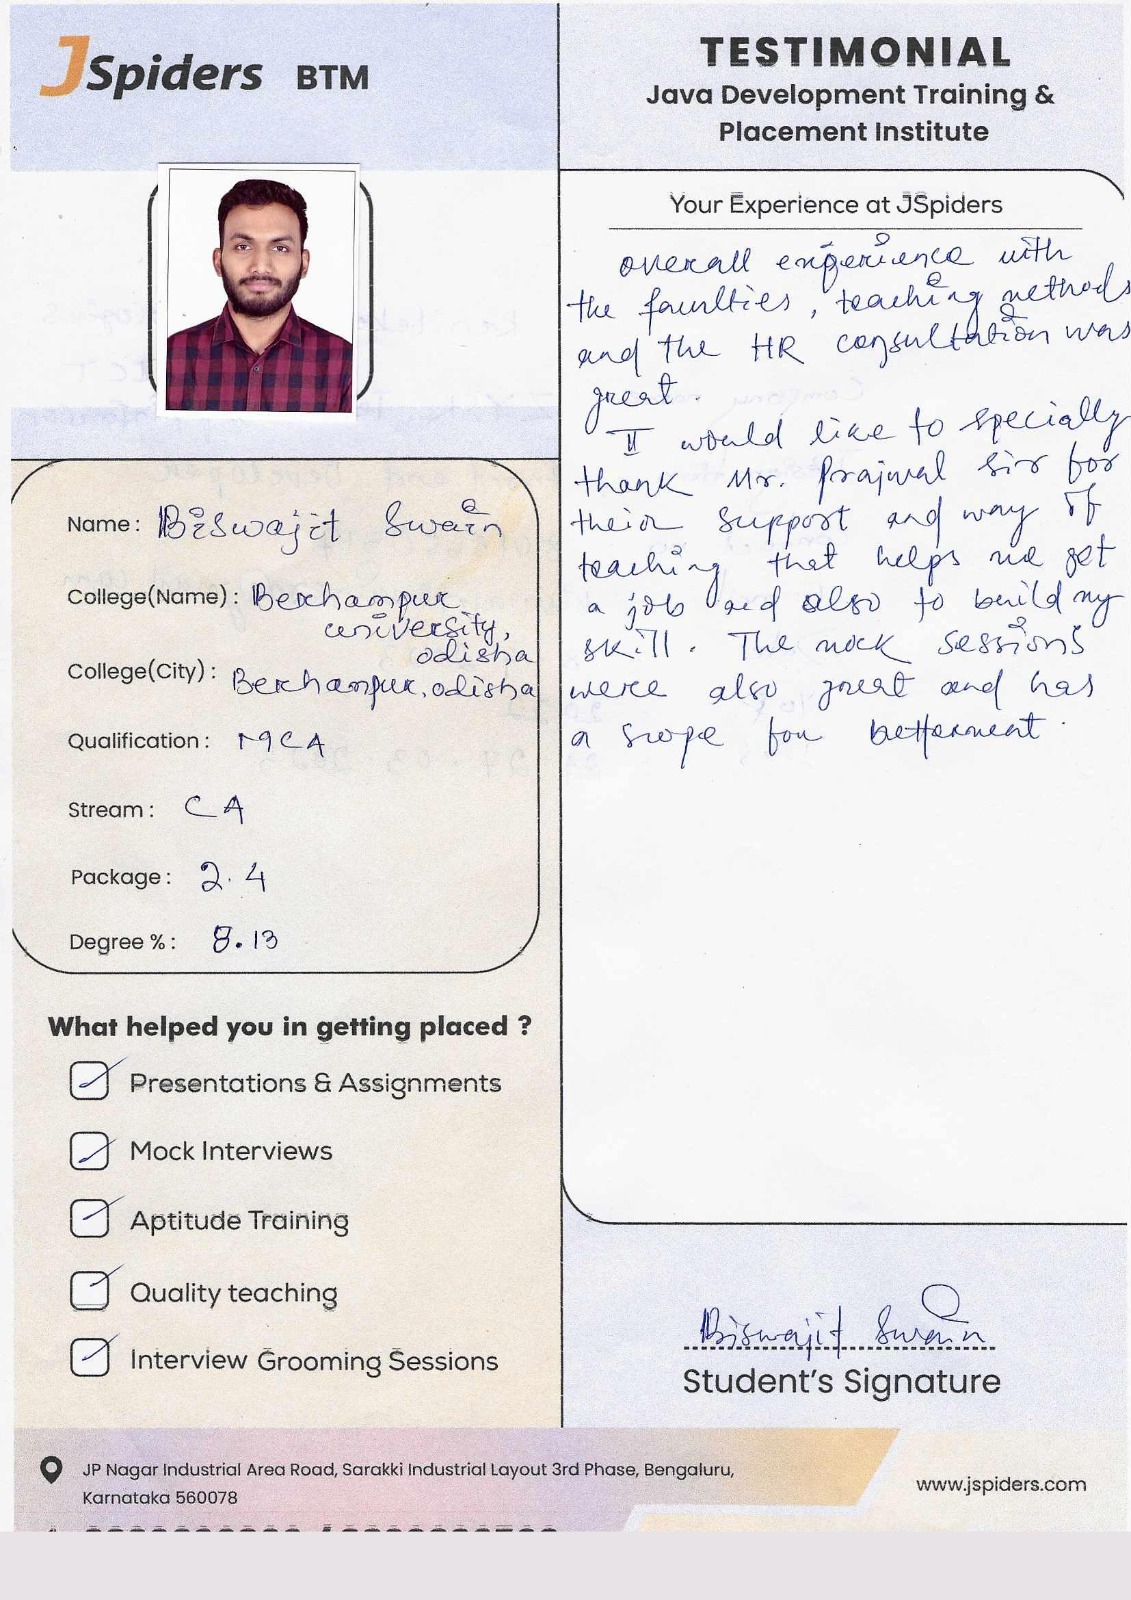 JSpiders BTM
TESTIMONIAL
Java Development Training &
Placement Institute
Name: Biswajit Swain
College(Name): Berhampur
university,
odisha
College(City): Berhampur, odisha
Qualification: MCA
Stream: CA
Package: 2.4
Degree %: 8.13
What helped you in getting placed ?
Presentations & Assignments
Mock Interviews
Aptitude Training
Quality teaching
Interview Grooming Sessions
Your Experience at JSpiders
overall experience with
the faculties, teaching methods
and the HR consultation was
great.
I would like to specially
thank Mr. Prajwal sir for
their support and way of
teaching that helps me get
a job and also to build my
skill. The mock sessions
were also great and has
a scope for betterment.
Biswajit Swain
Student's Signature
JP Nagar Industrial Area Road, Sarakki Industrial Layout 3rd Phase, Bengaluru,
Karnataka 560078
www.jspiders.com